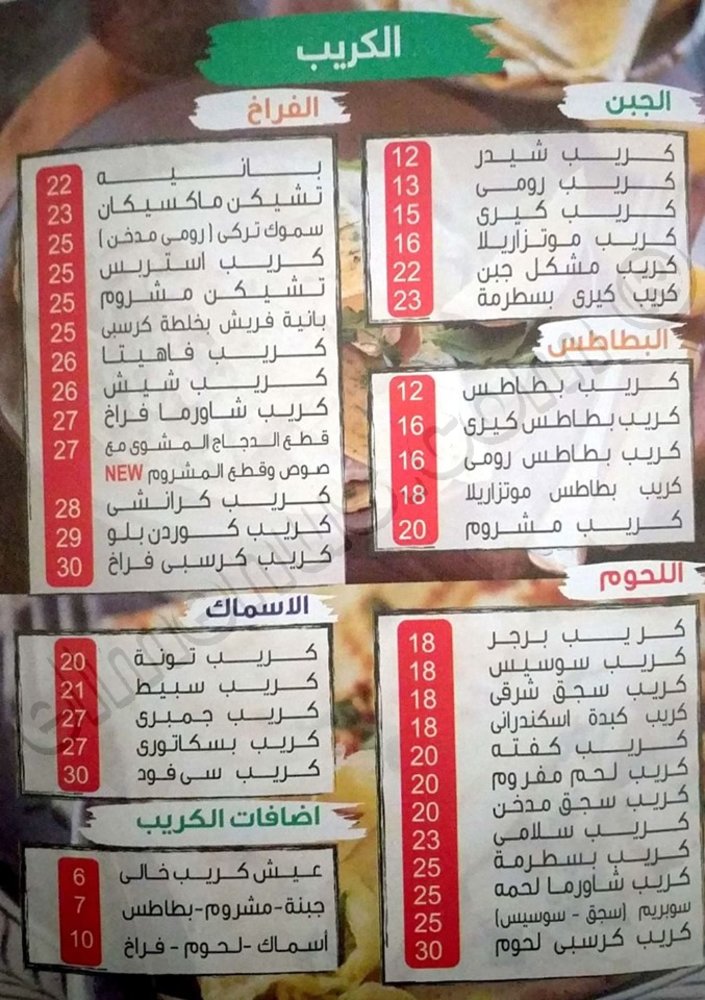 الكريب
الجبن
كريب شيدر 12
كريب رومى 13
كريب كيرى 15
كريب موتزاريلا 16
كريب مشكل جبن 22
كريب كيرى بسطرمة 23
البطاطس
كريب بطاطس 12
كريب بطاطس كيرى 16
كريب بطاطس رومى 16
كريب بطاطس موتزاريلا 18
كريب مشروم 20
اللحوم
كريب برجر 18
كريب سوسيس 18
كريب سجق شرقى 18
كريب كبدة اسكندرانى 18
كريب كفته 20
كريب لحم مفروم 20
كريب سجق مدخن 20
كريب سلامى 23
كريب بسطرمة 25
كريب شاورما لحمه 25
سوبريم (سجق - سوسيس) 25
كريب كرسبى لحوم 30
الفراخ
بانيه 22
تشيكن ماكسيكان 23
سموك تركى (رومى مدخن) 25
كريب استربس 25
تشيكن مشروم 25
بانية فريش بخلطة كرسبى 25
كريب فاهيتا 26
كريب شيش 26
كريب شاورما فراخ 27
قطع الدجاج المشوى مع 27
صوص وقطع المشروم NEW
كريب كرانشى 28
كريب كوردن بلو 29
كريب كرسبى فراخ 30
الاسماك
كريب تونة 20
كريب سبيط 21
كريب جمبرى 27
كريب بسكاتورى 27
كريب سى فود 30
اضافات الكريب
عيش كريب خالى 6
جبنة-مشروم-بطاطس 7
أسماك -لحوم - فراخ 10
elmenus.com ©